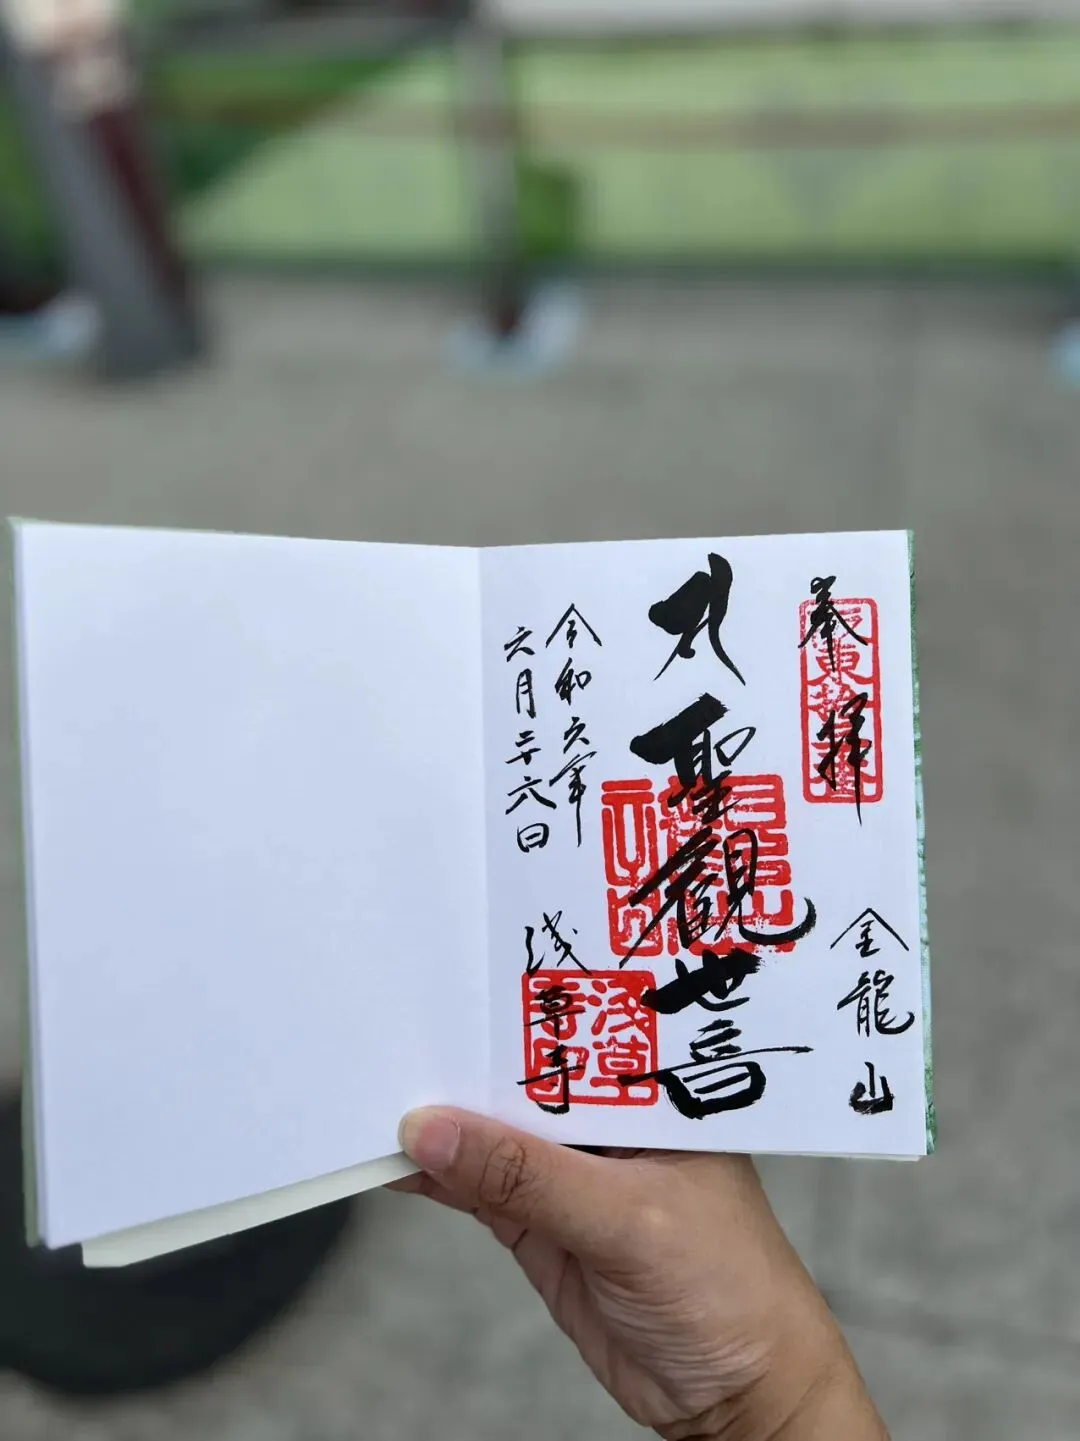 奉拝
坂東拾三番
金龍山
聖観世音
令和六年
六月二十六日
浅草寺
浅草寺印